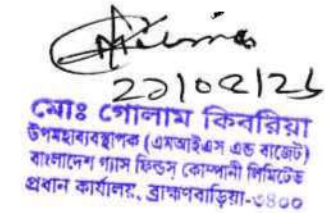 মোঃ গোলাম কিবরিয়া
উপমহাব্যবস্থাপক (এমআইএস এন্ড বাজেট)
বাংলাদেশ গ্যাস ফিল্ডস্ কোম্পানী লিমিটেড
প্রধান কার্যালয়, ব্রাহ্মণবাড়িয়া-৩৪০০